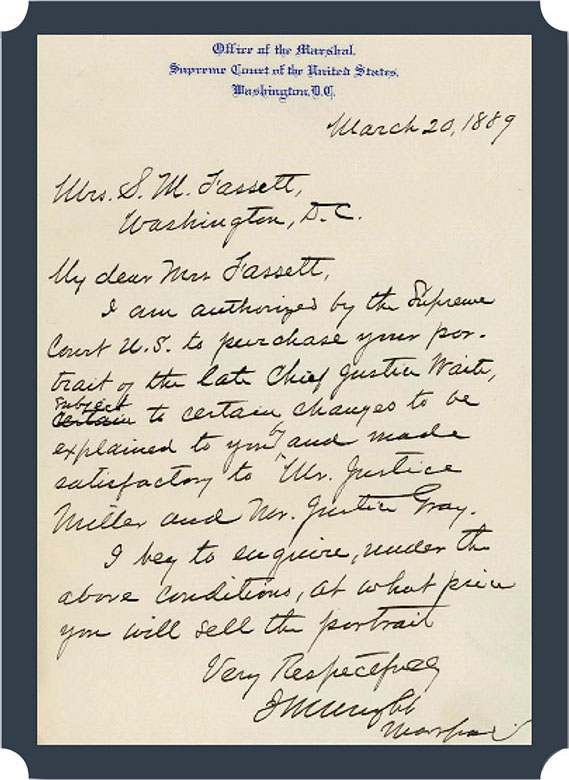 Office of the Marshal,
Supreme Court of the United States,
Washington, D.C.
March 20, 1889
Mrs. S. M. Fassett,
Washington, D.C.
My dear Mrs Fassett,
I am authorized by the Supreme
Court U.S. to purchase your por-
trait of the late Chief Justice Waite,
subject
certain to certain changes to be
explained to you by and made
satisfactory to Mr. Justice
Miller and Mr. Justice Gray.
I beg to enquire, under the
above conditions, at what price
you will sell the portrait
Very Respectfully
J M Wright
Marshal